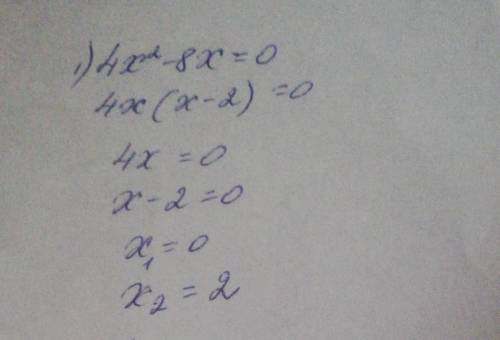 1) 4x² - 8x = 0
4x(x - 2) = 0
4x = 0
x - 2 = 0
x₁ = 0
x₂ = 2